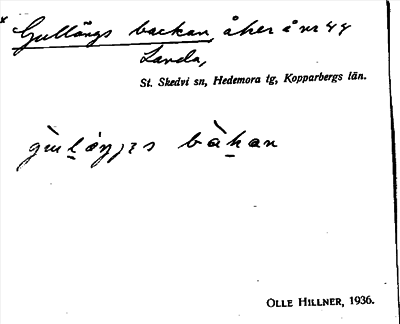 Gullängs backan, åker å nr 44
Landa,
St. Skedvi sn, Hedemora tg, Kopparbergs län.
OLLE HILLNER, 1936.